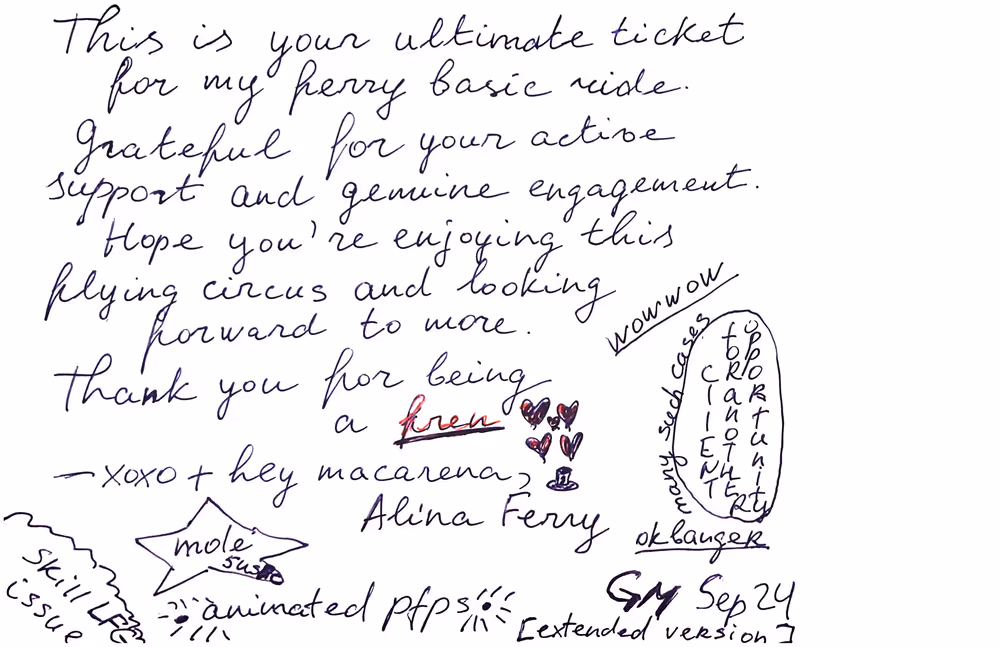 This is your ultimate ticket
for my ferry basic ride.
Grateful for your active
support and genuine engagement.
Hope you're enjoying this
flying circus and looking
forward to more.
Thank you for being
a fren
— xoxo + hey macarena,
Alina Ferry
wowwow
many such cases
opportunity
to another
client
ok banger
mole
skill issue
LFG
animated pfps
GM Sep 24
[extended version]